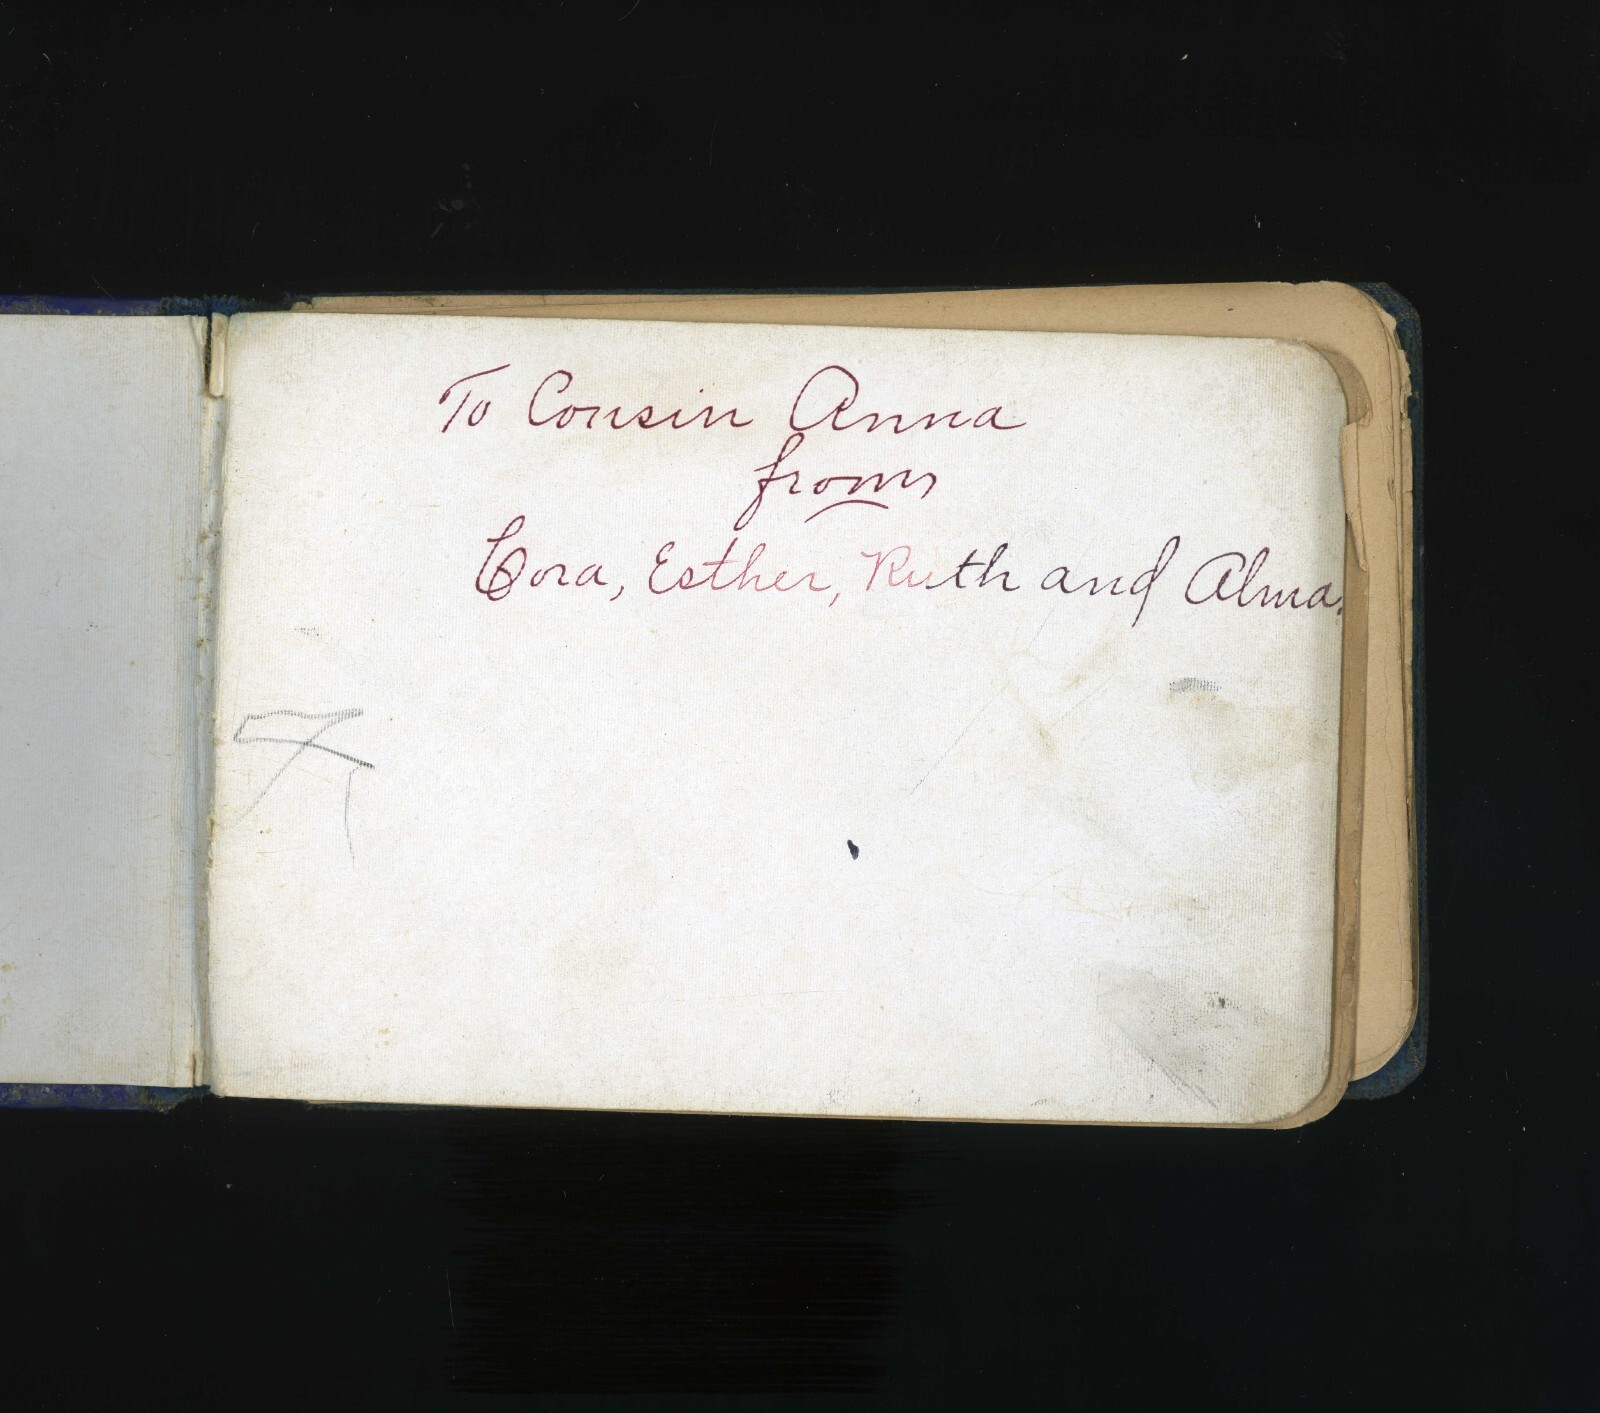 To Cousin Anna
from
Cora, Esther, Ruth and Alma.